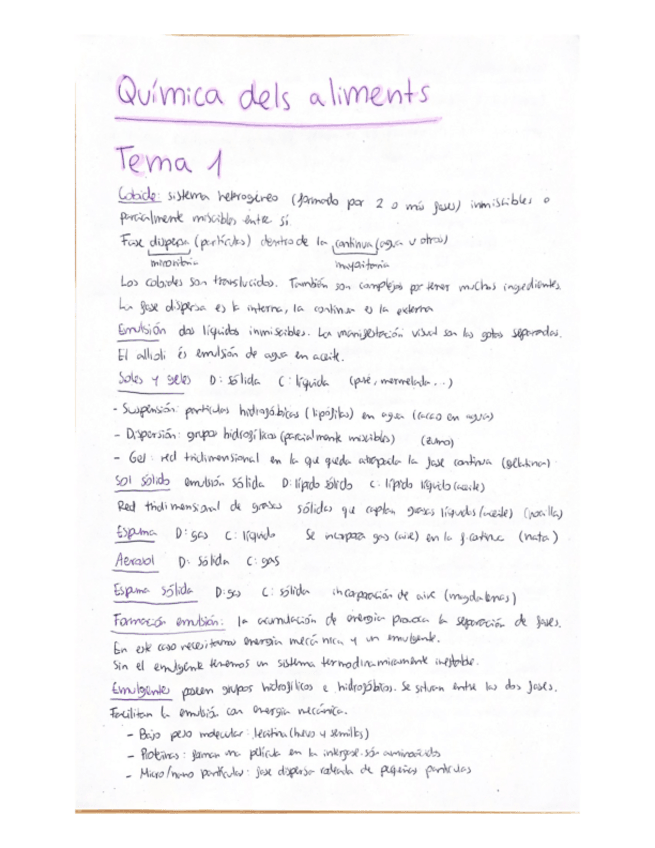 Química dels aliments
Tema 1
Coloide: sistema heterogéneo (formado por 2 o más fases) inmiscibles o
parcialmente miscibles entre sí.
Fase dispersa (partículas) dentro de la continua (agua u otros)
minoritaria mayoritaria
Los coloides son translucidos. También son complejos por tener muchos ingredientes.
La fase dispersa es la interna, la continua es la externa
Emulsión dos líquidos inmiscibles. La manifestación visual son las gotas separadas.
El allioli és emulsión de agua en aceite.
Soles y geles D: sólida C: líquida (paté, mermelada...)
- Suspensión: partículas hidrofóbicas (lipófilas) en agua (cacao en agua)
- Dispersión: grupos hidrofílicos (parcialmente miscibles) (zumo)
- Gel: red tridimensional en la que queda atrapada la fase continua (gelatina)
Sol sólido emulsión sólida D: lípido sólido C: lípido líquido (aceite)
Red tridimensional de grasas sólidas que captan grasas líquidas (aceite)
Espuma D: gas C: líquido Se incorpora gas (aire) en la f. continua (nata)
Aerosol D: sólida C: gas
Espuma sólida D: gas C: sólida incorporación de aire (magdalenas)
Formación emulsión: la acumulación de energía provoca la separación de fases.
En este caso necesitamos energía mecánica y un emulgente.
Sin el emulgente tenemos un sistema termodinamicamente inestable.
Emulgentes poseen grupos hidrofílicos e hidrofóbicos. Se situan entre las dos fases.
Facilitan la emulsión con energía mecánica.
- Bajo peso molecular: lecitina (huevo y semillas)
- Proteínas: forman una película en la interfase. són aminoácidos
- Micro/nano partículas: fase dispersa rodeada de pequeñas partículas